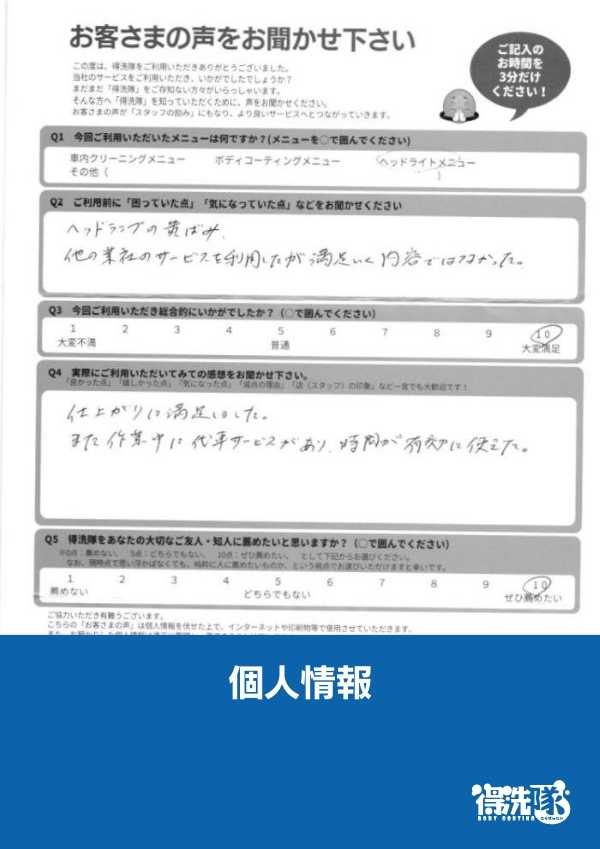 お客さまの声をお聞かせ下さい
ご記入の
お時間を
3分だけ
ください！
この度は、得洗隊をご利用いただきありがとうございました。
当社のサービスをご利用いただき、いかがでしたでしょうか？
まだまだ「得洗隊」をご存知ない方々がいらっしゃいます。
そんな方へ「得洗隊」を知っていただくために、声をお聞かせください。
お客さまの声が「スタッフの励み」にもなり、より良いサービスへとつながっていきます。
Q1 今回ご利用いただいたメニューは何ですか？(メニューを○で囲んでください)
車内クリーニングメニュー ボディコーティングメニュー ヘッドライトメニュー
その他（ ）
Q2 ご利用前に「困っていた点」「気になっていた点」などをお聞かせください
ヘッドランプの黄ばみ、
他の業社のサービスを利用したが満足いく内容ではなかった。
Q3 今回ご利用いただき総合的にいかがでしたか？（○で囲んでください）
1 2 3 4 5 6 7 8 9 10
大変不満 普通 大変満足
Q4 実際にご利用いただいてみての感想をお聞かせ下さい。
「良かった点」「嬉しかった点」「気になった点」「減点の理由」「店（スタッフ）の印象」など一言でも大歓迎です！
仕上がりに満足しました。
また作業中に代車サービスがあり、時間が有効に使えた。
Q5 得洗隊をあなたの大切なご友人・知人に薦めたいと思いますか？（○で囲んでください）
※0点：薦めない、 5点：どちらでもない、 10点：ぜひ薦めたい、 として下記からお選びください。
なお、現時点で思い浮かばなくても、純粋に人に薦めたいものか、という視点でお選びいただけますと幸いです。
1 2 3 4 5 6 7 8 9 10
薦めない どちらでもない ぜひ薦めたい
ご協力いただき有難うございます。
こちらの「お客さまの声」は個人情報を伏せた上で、インターネットや印刷物等で使用させていただきます。
個人情報
得洗隊
BODY COATING